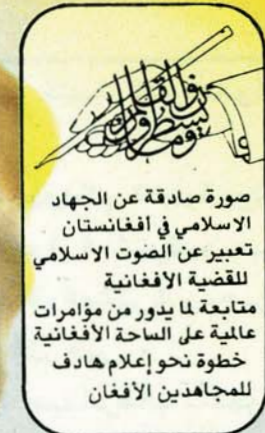 ن والقلم وما يسطرون
صورة صادقة عن الجهاد
الاسلامي في أفغانستان
تعبير عن الصوت الاسلامي
للقضية الأفغانية
متابعة لما يدور من مؤامرات
عالمية على الساحة الأفغانية
خطوة نحو إعلام هادف
للمجاهدين الأفغان